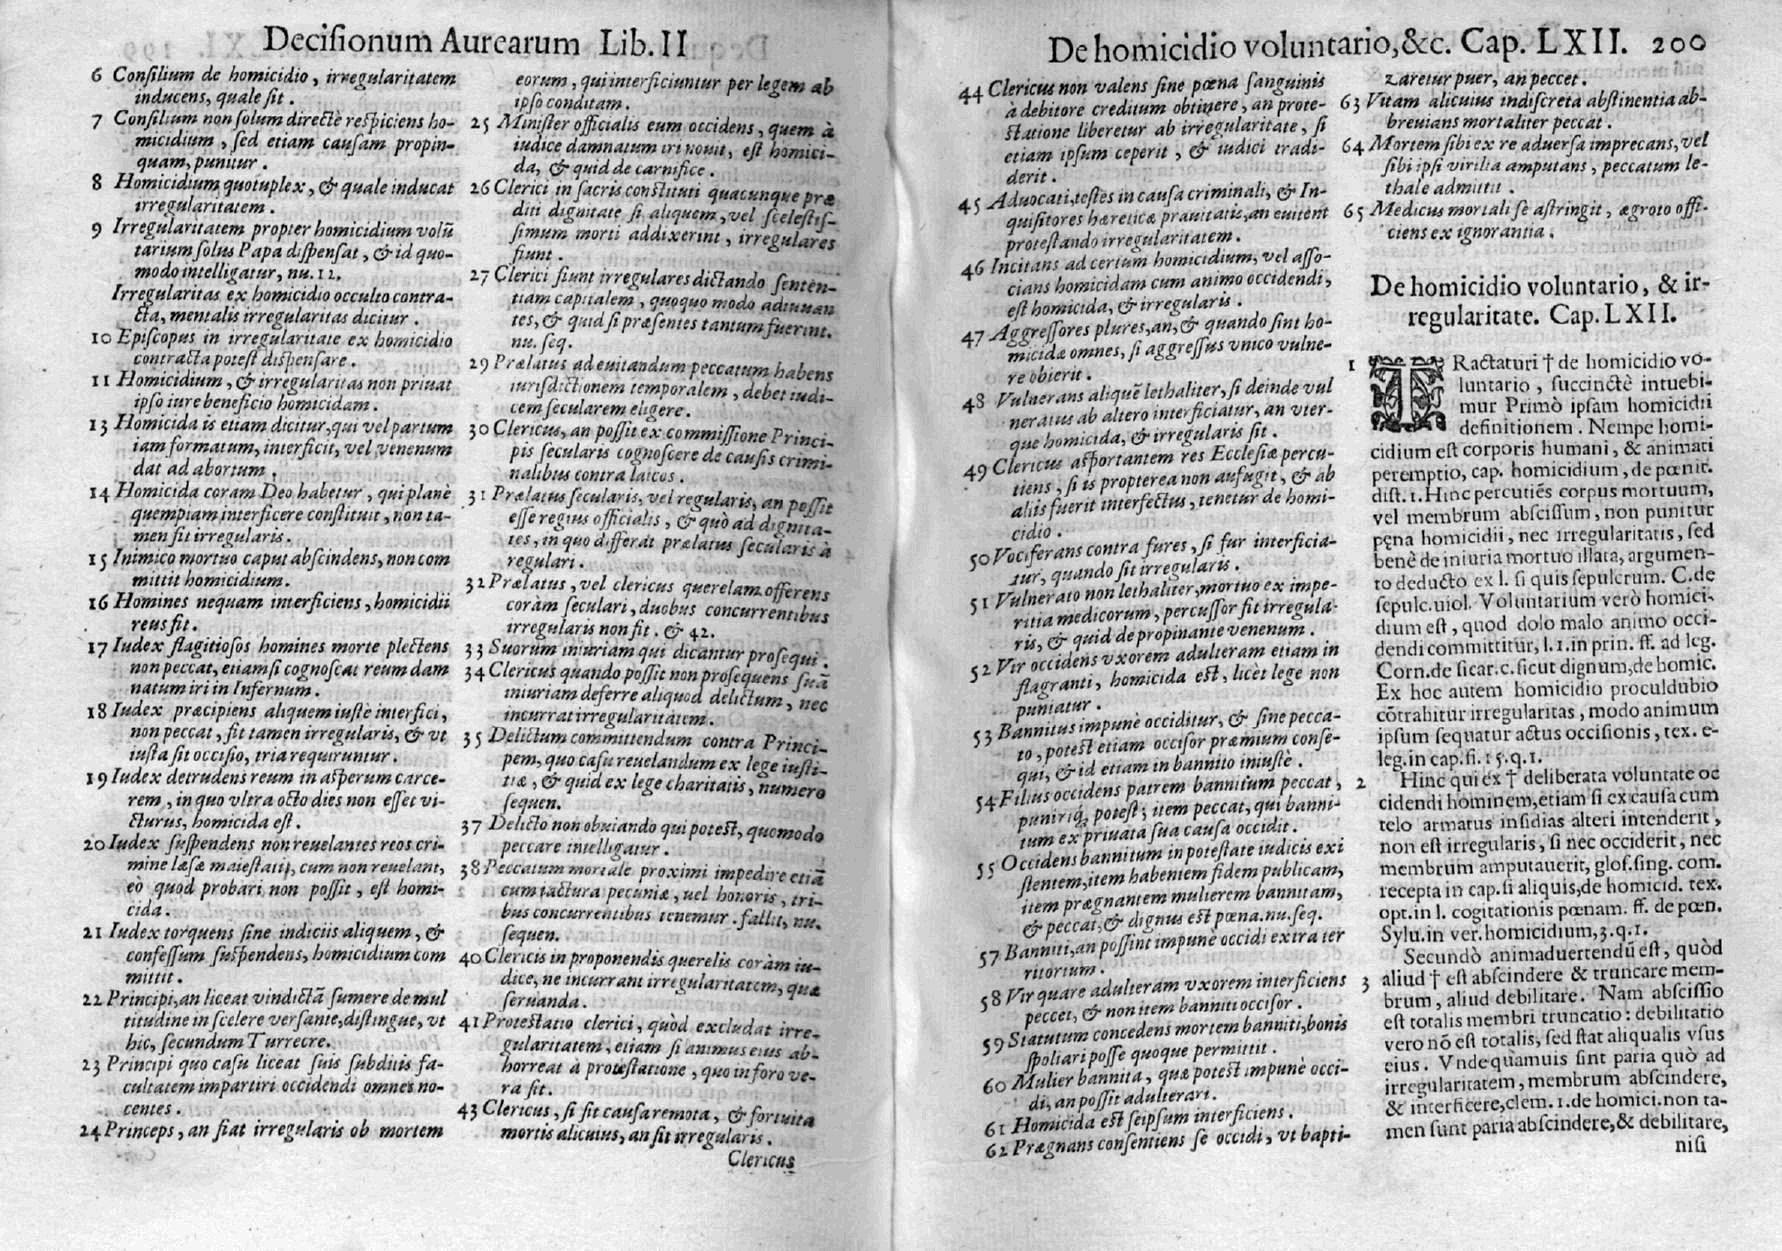 Decisionum Aurearum Lib. II
6 Consilium de homicidio, irregularitatem
inducens, quale sit.
7 Consilium non solum directè respiciens ho-
micidium, sed etiam causam propin-
quam, punitur.
8 Homicidium quotuplex, & quale inducat
irregularitatem.
9 Irregularitatem propter homicidium volũ
tarium solus Papa dispensat, & id quo-
modo intelligatur, nu. 12.
Irregularitas ex homicidio occulto contra-
cta, mentalis irregularitas dicitur.
10 Episcopus in irregularitate ex homicidio
contracta potest dispensare.
11 Homicidium, & irregularitas non priuat
ipso iure beneficio homicidam.
13 Homicida is etiam dicitur, qui vel partum
iam formatum, interficit, vel venenum
dat ad abortum.
14 Homicida coram Deo habetur, qui planè
quempiam interficere constituit, non ta-
men fit irregularis.
15 Inimico mortuo caput abscindens, non com
mittit homicidium.
16 Homines nequam interficiens, homicidii
reus fit.
17 Iudex flagitiosos homines morte plectens
non peccat, etiamsi cognoscat reum dam
natum iri in Infernum.
18 Iudex præcipiens aliquem iustè interfici,
non peccat, fit tamen irregularis, & vt
iusta sit occisio, tria requiruntur.
19 Iudex detrudens reum in asperum carce-
rem, in quo vltra octo dies non esset vi-
cturus, homicida est.
20 Iudex suspendens non reuelantes reos cri-
mine læsæ maiestatis, cum non reuelant,
eò quod probari non possit, est homi-
cida.
21 Iudex torquens sine indiciis aliquem, &
confessum suspendens, homicidium com
mittit.
22 Principi, an liceat vindictã sumere de mul
titudine in scelere versante, distingue, vt
hic, secundum Turrecre.
23 Principi quo casu liceat suis subditis fa-
cultatem impartiri occidendi omnes no-
centes.
24 Princeps, an fiat irregularis ob mortem
eorum, qui interficiuntur per legem ab
ipso conditam.
25 Minister officialis eum occidens, quem à
iudice damnatum iri nouit, est homici-
da, & quid de carnifice.
26 Clerici in sacris constituti quacunque præ
diti dignitate si aliquem, vel scelestis-
simum morti addixerint, irregulares
fiunt.
27 Clerici fiunt irregulares dictando senten-
tiam capitalem, quoquo modo adiuuan
tes, & quid si præsentes tantum fuerint.
nu. seq.
29 Prælatus ad euitandum peccatum habens
iurisdictionem temporalem, debet iudi-
cem secularem eligere.
30 Clericus, an possit ex commissione Princi-
pis secularis cognoscere de causis crimi-
nalibus contra laicos.
31 Prælatus secularis, vel regularis, an possit
esse regius officialis, & quò ad dignita-
tes, in quo differat prælatus secularis à
regulari.
32 Prælatus, vel clericus querelam offerens
coràm seculari, duobus concurrentibus
irregularis non fit. & 42.
33 Suorum iniuriam qui dicantur prosequi.
34 Clericus quando possit non prosequens suã
iniuriam deferre aliquod delictum, nec
incurrat irregularitatem.
35 Delictum committendum contra Princi-
pem, quo casu reuelandum ex lege iusti-
tiæ, & quid ex lege charitatis, numero
sequen.
37 Delicto non obuiando qui potest, quomodo
peccare intelligatur.
38 Peccatum mortale proximi impedire etiã
cum iactura pecuniæ, vel honoris, tri-
bus concurrentibus tenemur. fallit, nu.
sequen.
40 Clericis in proponendis querelis coràm iu-
dice, ne incurrant irregularitatem, quæ
seruanda.
41 Protestatio clerici, quòd excludat irre-
gularitatem, etiam si animus eius ab-
horreat à protestatione, quo in foro ve-
ra sit.
43 Clericus, si sit causa remota, & fortuita
mortis alicuius, an sit irregularis.
Clericus
De homicidio voluntario, &c. Cap. LXII. 200
44 Clericus non valens sine pœna sanguinis
à debitore creditum obtinere, an prote-
statione liberetur ab irregularitate, si
etiam ipsum ceperit, & iudici tradi-
derit.
45 Aduocati, testes in causa criminali, & In-
quisitores hæreticæ prauitatis, an euitent
protestando irregularitatem.
46 Incitans ad certum homicidium, vel asso-
cians homicidam cum animo occidendi,
est homicida, & irregularis.
47 Aggressores plures, an, & quando sint ho-
micidæ omnes, si aggressus vnico vulne-
re obierit.
48 Vulnerans aliquẽ lethaliter, si deinde vul
neratus ab altero interficiatur, an vter-
que homicida, & irregularis sit.
49 Clericus asportantem res Ecclesiæ percu-
tiens, si is propterea non aufugit, & ab
aliis fuerit interfectus, tenetur de homi-
cidio.
50 Vociferans contra fures, si fur interficia-
tur, quando sit irregularis.
51 Vulnerato non lethaliter, mortuo ex impe-
ritia medicorum, percussor fit irregula-
ris, & quid de propinante venenum.
52 Vir occidens vxorem adulteram etiam in
flagranti, homicida est, licèt lege non
puniatur.
53 Bannitus impunè occiditur, & sine pecca-
to, potest etiam occisor præmium conse-
qui, & id etiam in bannito iniustè.
54 Filius occidens patrem bannitum peccat,
puniriq́; potest; item peccat, qui banni-
tum ex priuata sua causa occidit.
55 Occidens bannitum in potestate iudicis exi
stentem, item habentem fidem publicam,
item prægnantem mulierem bannitam,
& peccat, & dignus est pœna. nu. seq.
57 Banniti, an possint impune occidi extra ter
ritorium.
58 Vir quare adulteram vxorem interficiens
peccet, & non item banniti occisor.
59 Statutum concedens mortem banniti, bonis
spoliari posse quoque permittit.
60 Mulier bannita, quæ potest impunè occi-
di, an possit adulterari.
61 Homicida est seipsum interficiens.
62 Prægnans consentiens se occidi, vt bapti-
zaretur puer, an peccet.
63 Vitam alicuius indiscreta abstinentia ab-
breuians mortaliter peccat.
64 Mortem sibi ex re aduersa imprecans, vel
sibi ipsi virilia amputans, peccatum le-
thale admittit.
65 Medicus mortali se astringit, ægroto offi-
ciens ex ignorantia.
De homicidio voluntario, & ir-
regularitate. Cap. LXII.
1 TRactaturi † de homicidio vo-
luntario, succinctè intuebi-
mur Primò ipsam homicidii
definitionem. Nempe homi-
cidium est corporis humani, & animati
peremptio, cap. homicidium, de pœnit.
dist. 1. Hinc percutiẽs corpus mortuum,
vel membrum abscissum, non punitur
pęna homicidii, nec irregularitatis, sed
benè de iniuria mortuo illata, argumen-
to deducto ex l. si quis sepulcrum. C. de
sepulc. uiol. Voluntarium verò homici-
dium est, quod dolo malo animo occi-
dendi committitur, l. 1. in prin. ff. ad leg.
Corn. de sicar. c. sicut dignum, de homic.
Ex hoc autem homicidio proculdubio
cõtrahitur irregularitas, modo animum
ipsum sequatur actus occisionis, tex. e-
leg. in cap. si. 15. q. 1.
2 Hinc qui ex † deliberata voluntate oc
cidendi hominem, etiam si ex causa cum
telo armatus insidias alteri intenderit,
non est irregularis, si nec occiderit, nec
membrum amputauerit, glos. sing. com.
recepta in cap. si aliquis, de homicid. tex.
opt. in l. cogitationis pœnam. ff. de pœn.
Sylu. in ver. homicidium, 3. q. 1.
Secundò animaduertendũ est, quòd
3 aliud † est abscindere & truncare mem-
brum, aliud debilitare. Nam abscissio
est totalis membri truncatio: debilitatio
vero nõ est totalis, sed stat aliqualis vsus
eius. Vnde quamuis sint paria quò ad
irregularitatem, membrum abscindere,
& interficere, clem. 1. de homici. non ta-
men sunt paria abscindere, & debilitare,
nisi